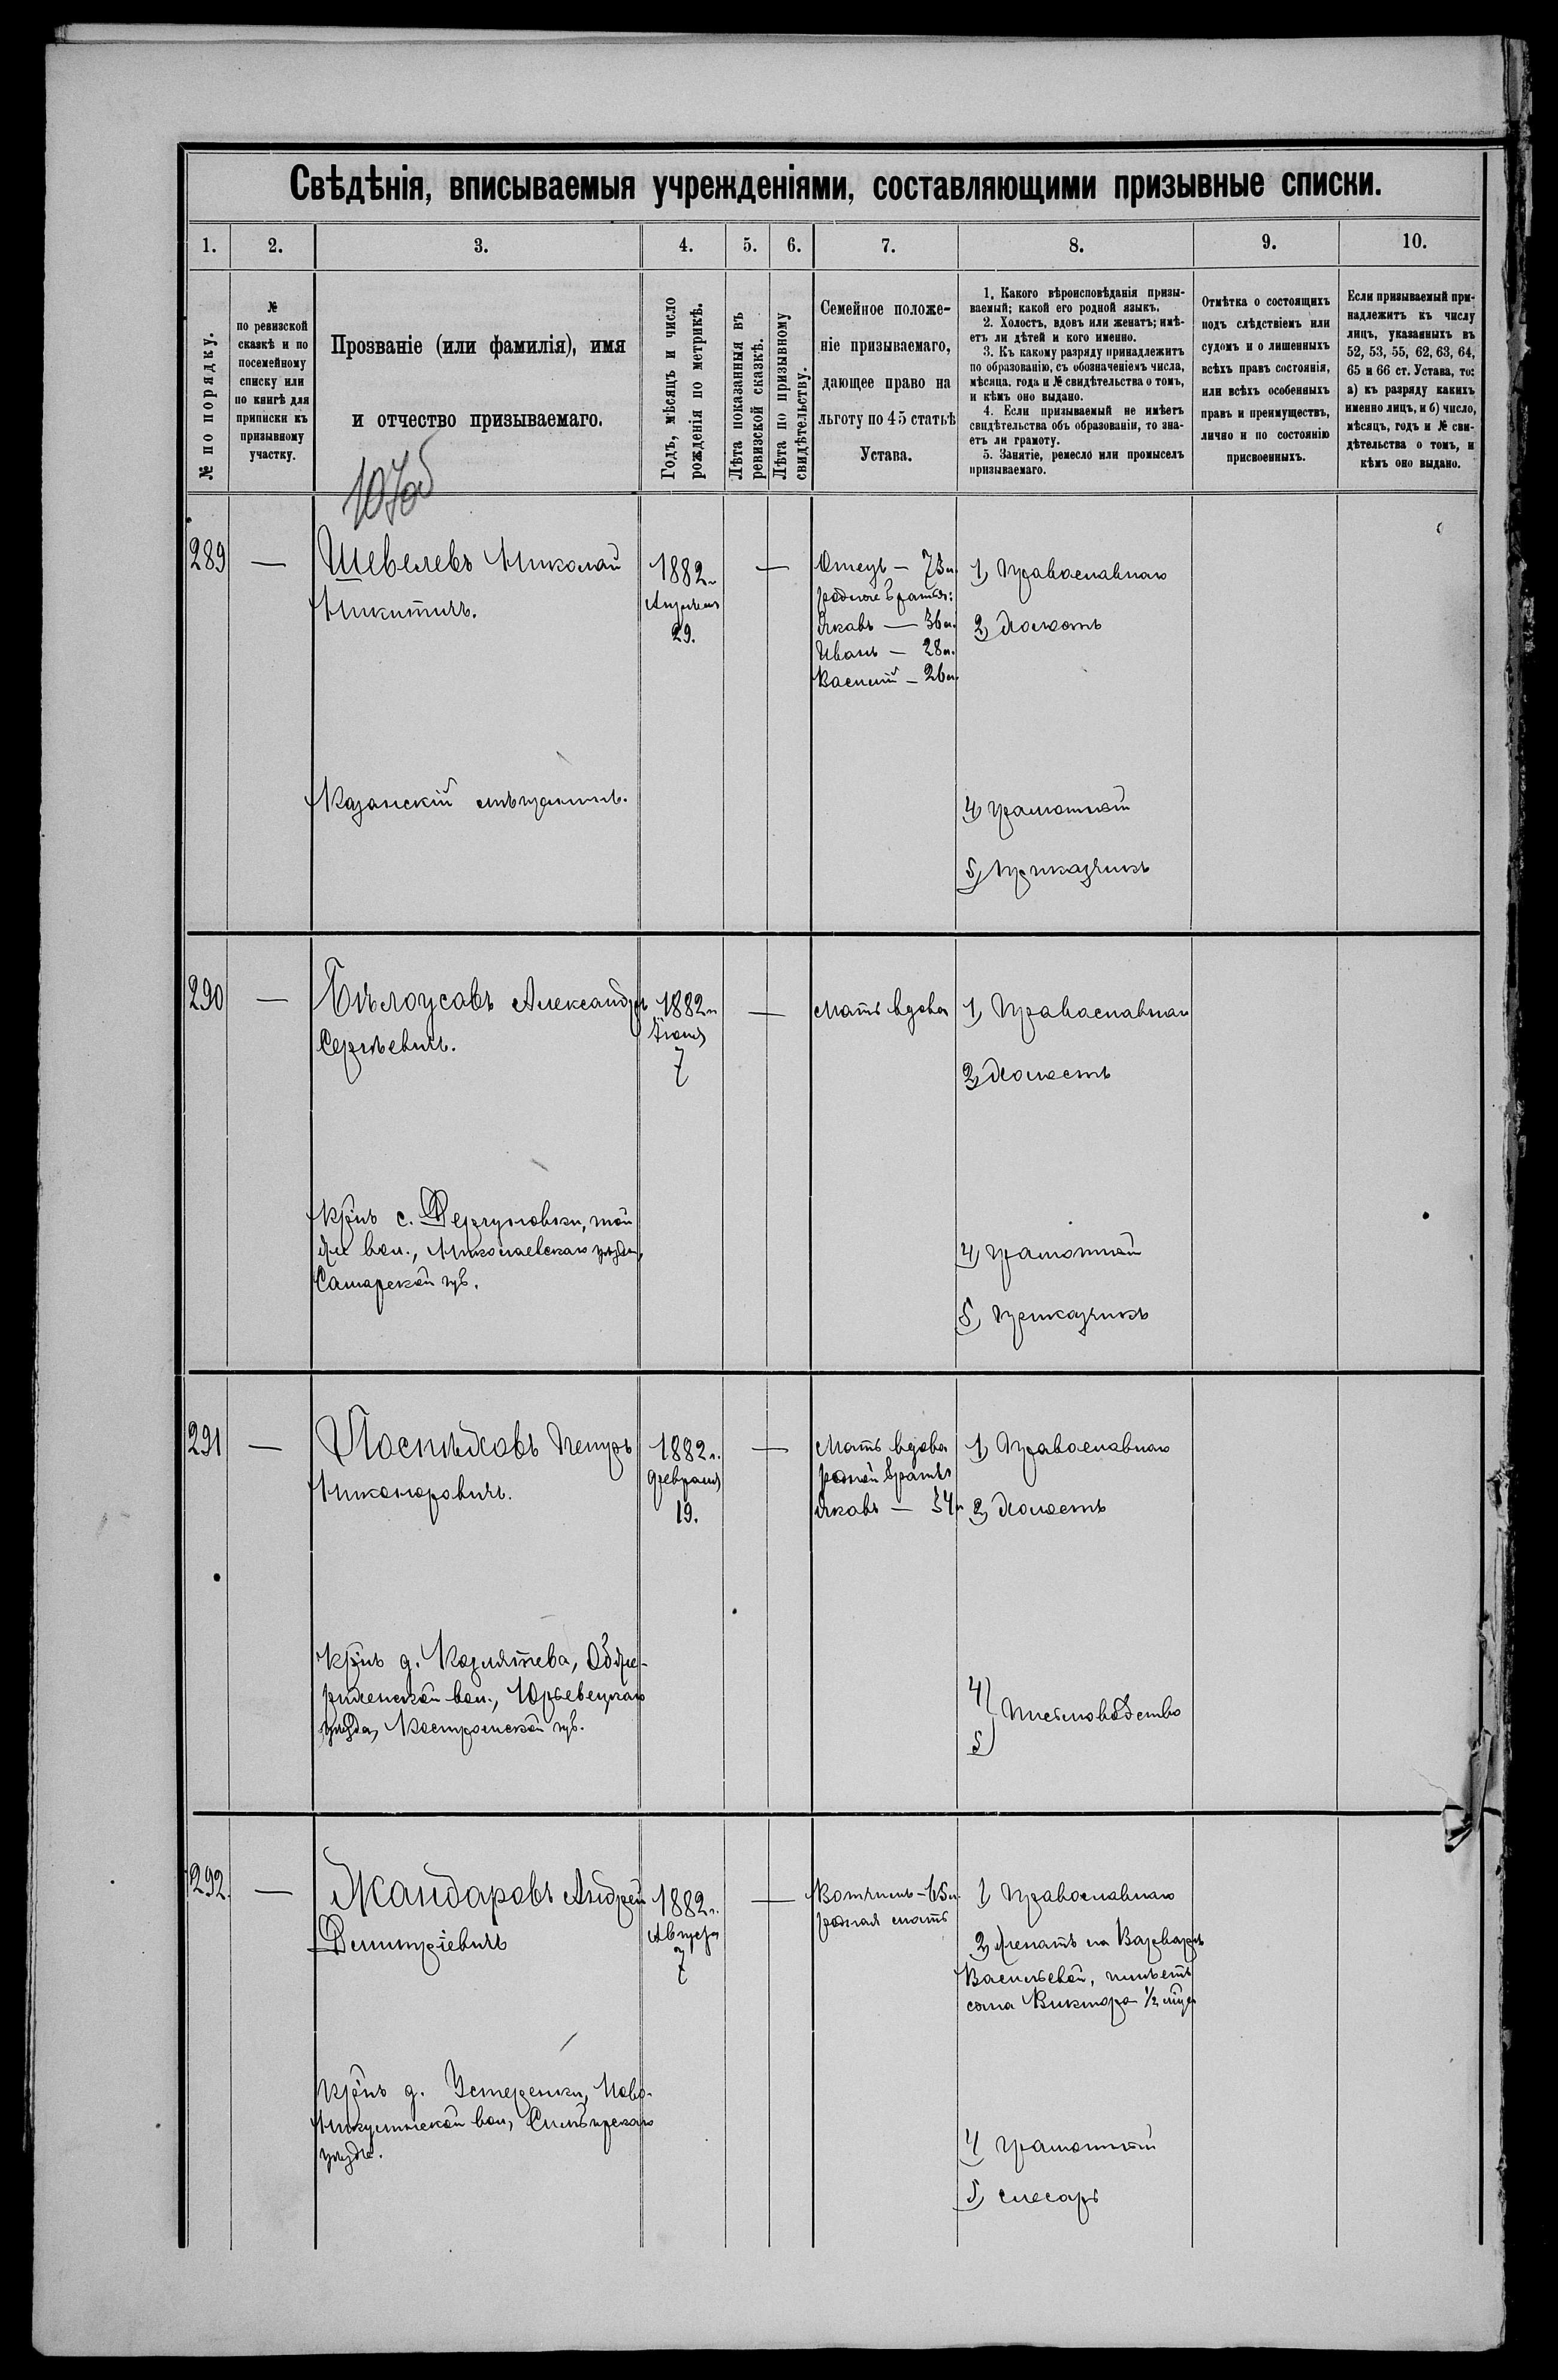 Свѣдѣнія, вписываемыя учрежденіями, составляющими призывные списки.
1. 2. 3. 4. 5. 6. 7. 8. 9. 10.
№ по порядку.
№
по ревизской
сказкѣ и по
посемейному
списку или
по книгѣ для
приписки къ
призывному
участку.
Прозваніе (или фамилія), имя
и отчество призываемаго.
Годъ, мѣсяцъ и число
рожденія по метрикѣ.
Лѣта показанныя въ
ревизской сказкѣ.
Лѣта по призывному
свидѣтельству.
Семейное положе-
ніе призываемаго,
дающее право на
льготу по 45 статьѣ
Устава.
1. Какого вѣроисповѣданія призы-
ваемый; какой его родной языкъ.
2. Холостъ, вдовъ или женатъ; имѣ-
етъ ли дѣтей и кого именно.
3. Къ какому разряду принадлежитъ
по образованію, съ обозначеніемъ числа,
мѣсяца, года и № свидѣтельства о томъ,
и кѣмъ оно выдано.
4. Если призываемый не имѣетъ
свидѣтельства объ образованіи, то зна-
етъ ли грамоту.
5. Занятіе, ремесло или промыселъ
призываемаго.
Отмѣтка о состоящихъ
подъ слѣдствіемъ или
судомъ и о лишенныхъ
всѣхъ правъ состоянія,
или всѣхъ особенныхъ
правъ и преимуществъ,
лично и по состоянію
присвоенныхъ.
Если призываемый при-
надлежитъ къ числу
лицъ, указанныхъ въ
52, 53, 55, 62, 63, 64,
65 и 66 ст. Устава, то:
а) къ разряду какихъ
именно лицъ, и б) число,
мѣсяцъ, годъ и № сви-
дѣтельства о томъ, и
кѣмъ оно выдано.
289 — Шевелевъ Николай
Никитичъ.
Казанскій мѣщанинъ.
1882 г.
Апрѣля
29.
—
Отецъ — 73 л.
родные братья:
Яковъ — 36 л.
Иванъ — 28 л.
Василій — 26 л.
1) Православнаго
2) Холостъ
4) Грамотный
5) Приказчикъ
290 — Бѣлоусовъ Александръ
Сергѣевичъ.
Кр-нъ с. Дергуновки, той
же вол., Николаевскаго уѣзда,
Самарской губ.
1882 г.
Іюня
7
—
Мать вдова
1) Православнаго
2) Холостъ
4) Грамотный
5) Приказчикъ
291 — Поспѣховъ Петръ
Никоноровичъ.
Кр-нъ д. Козлятева,
вол., Юрьевецкаго
уѣзда, Костромской губ.
1882 г.
Февраля
19.
—
Мать вдова
родной братъ
Яковъ — 34 л.
1) Православнаго
2) Холостъ
4)
5) Письмоводство
292. — Жандаровъ Андрей
Дмитріевичъ
Кр-нъ д. Устеренки, Ново-
Никулинской вол, Симбирскаго
уѣзда.
1882 г.
Августа
7
—
Вотчимъ — 65 л.
родная мать
1) Православнаго
2) Женатъ на Варварѣ
Васильевой, имѣетъ
сына Виктора 1/2 года
4) Грамотный
5) Слесарь